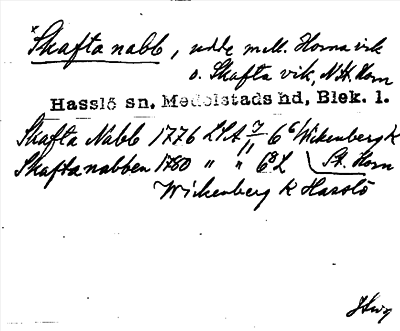 *Skaftanabb, udde mell. Horna vik
o. Skafta vik, N St. Horn
Hasslö sn. Medelstads hd, Blek. l.
Skafta Nabb 1776 LSA 7/11 6c Wickenberg K
Skaftanabben 1780 " " 68 L St. Horn
Wickenberg K Hasslö